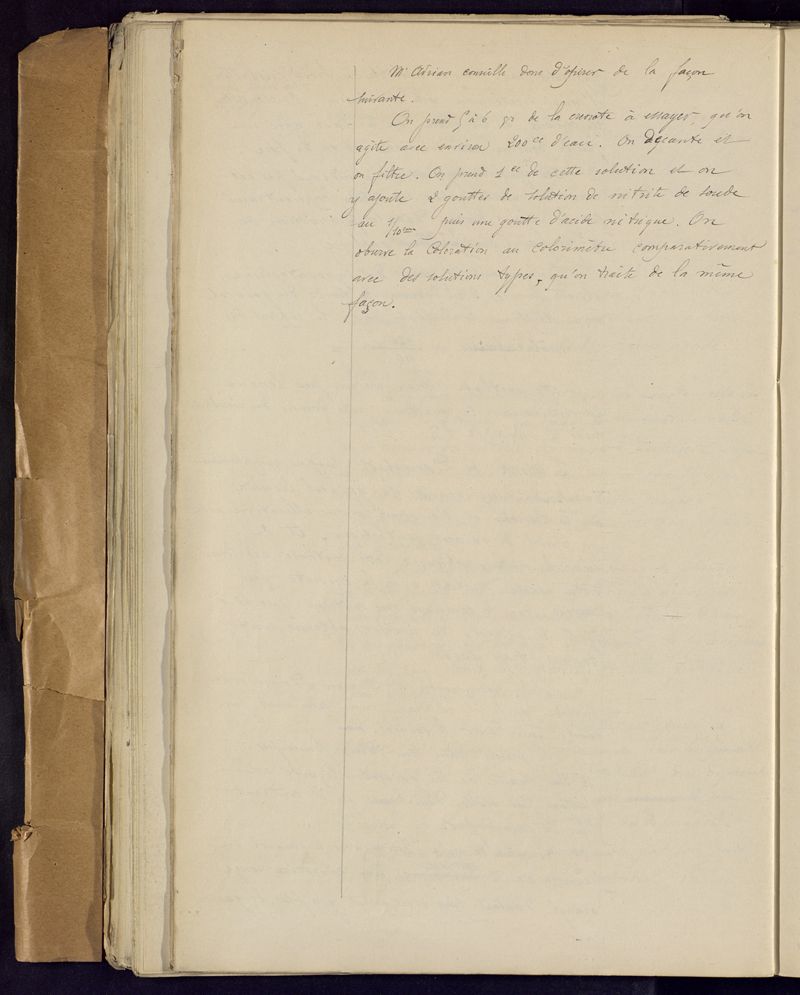 Mr Adrian conseille donc d'opérer de la façon
suivante.
On prend 5 à 6 gr de la créosote à essayer, qu'on
agite avec environ 200cc d'eau. On décante et
on filtre. On prend 1cc de cette solution et on
y ajoute 2 gouttes de solution de nitrite de soude
au 1/10ème puis une goutte d'acide nitrique. On
observe la coloration au colorimètre comparativement
avec des solutions types, qu'on traite de la même
façon.